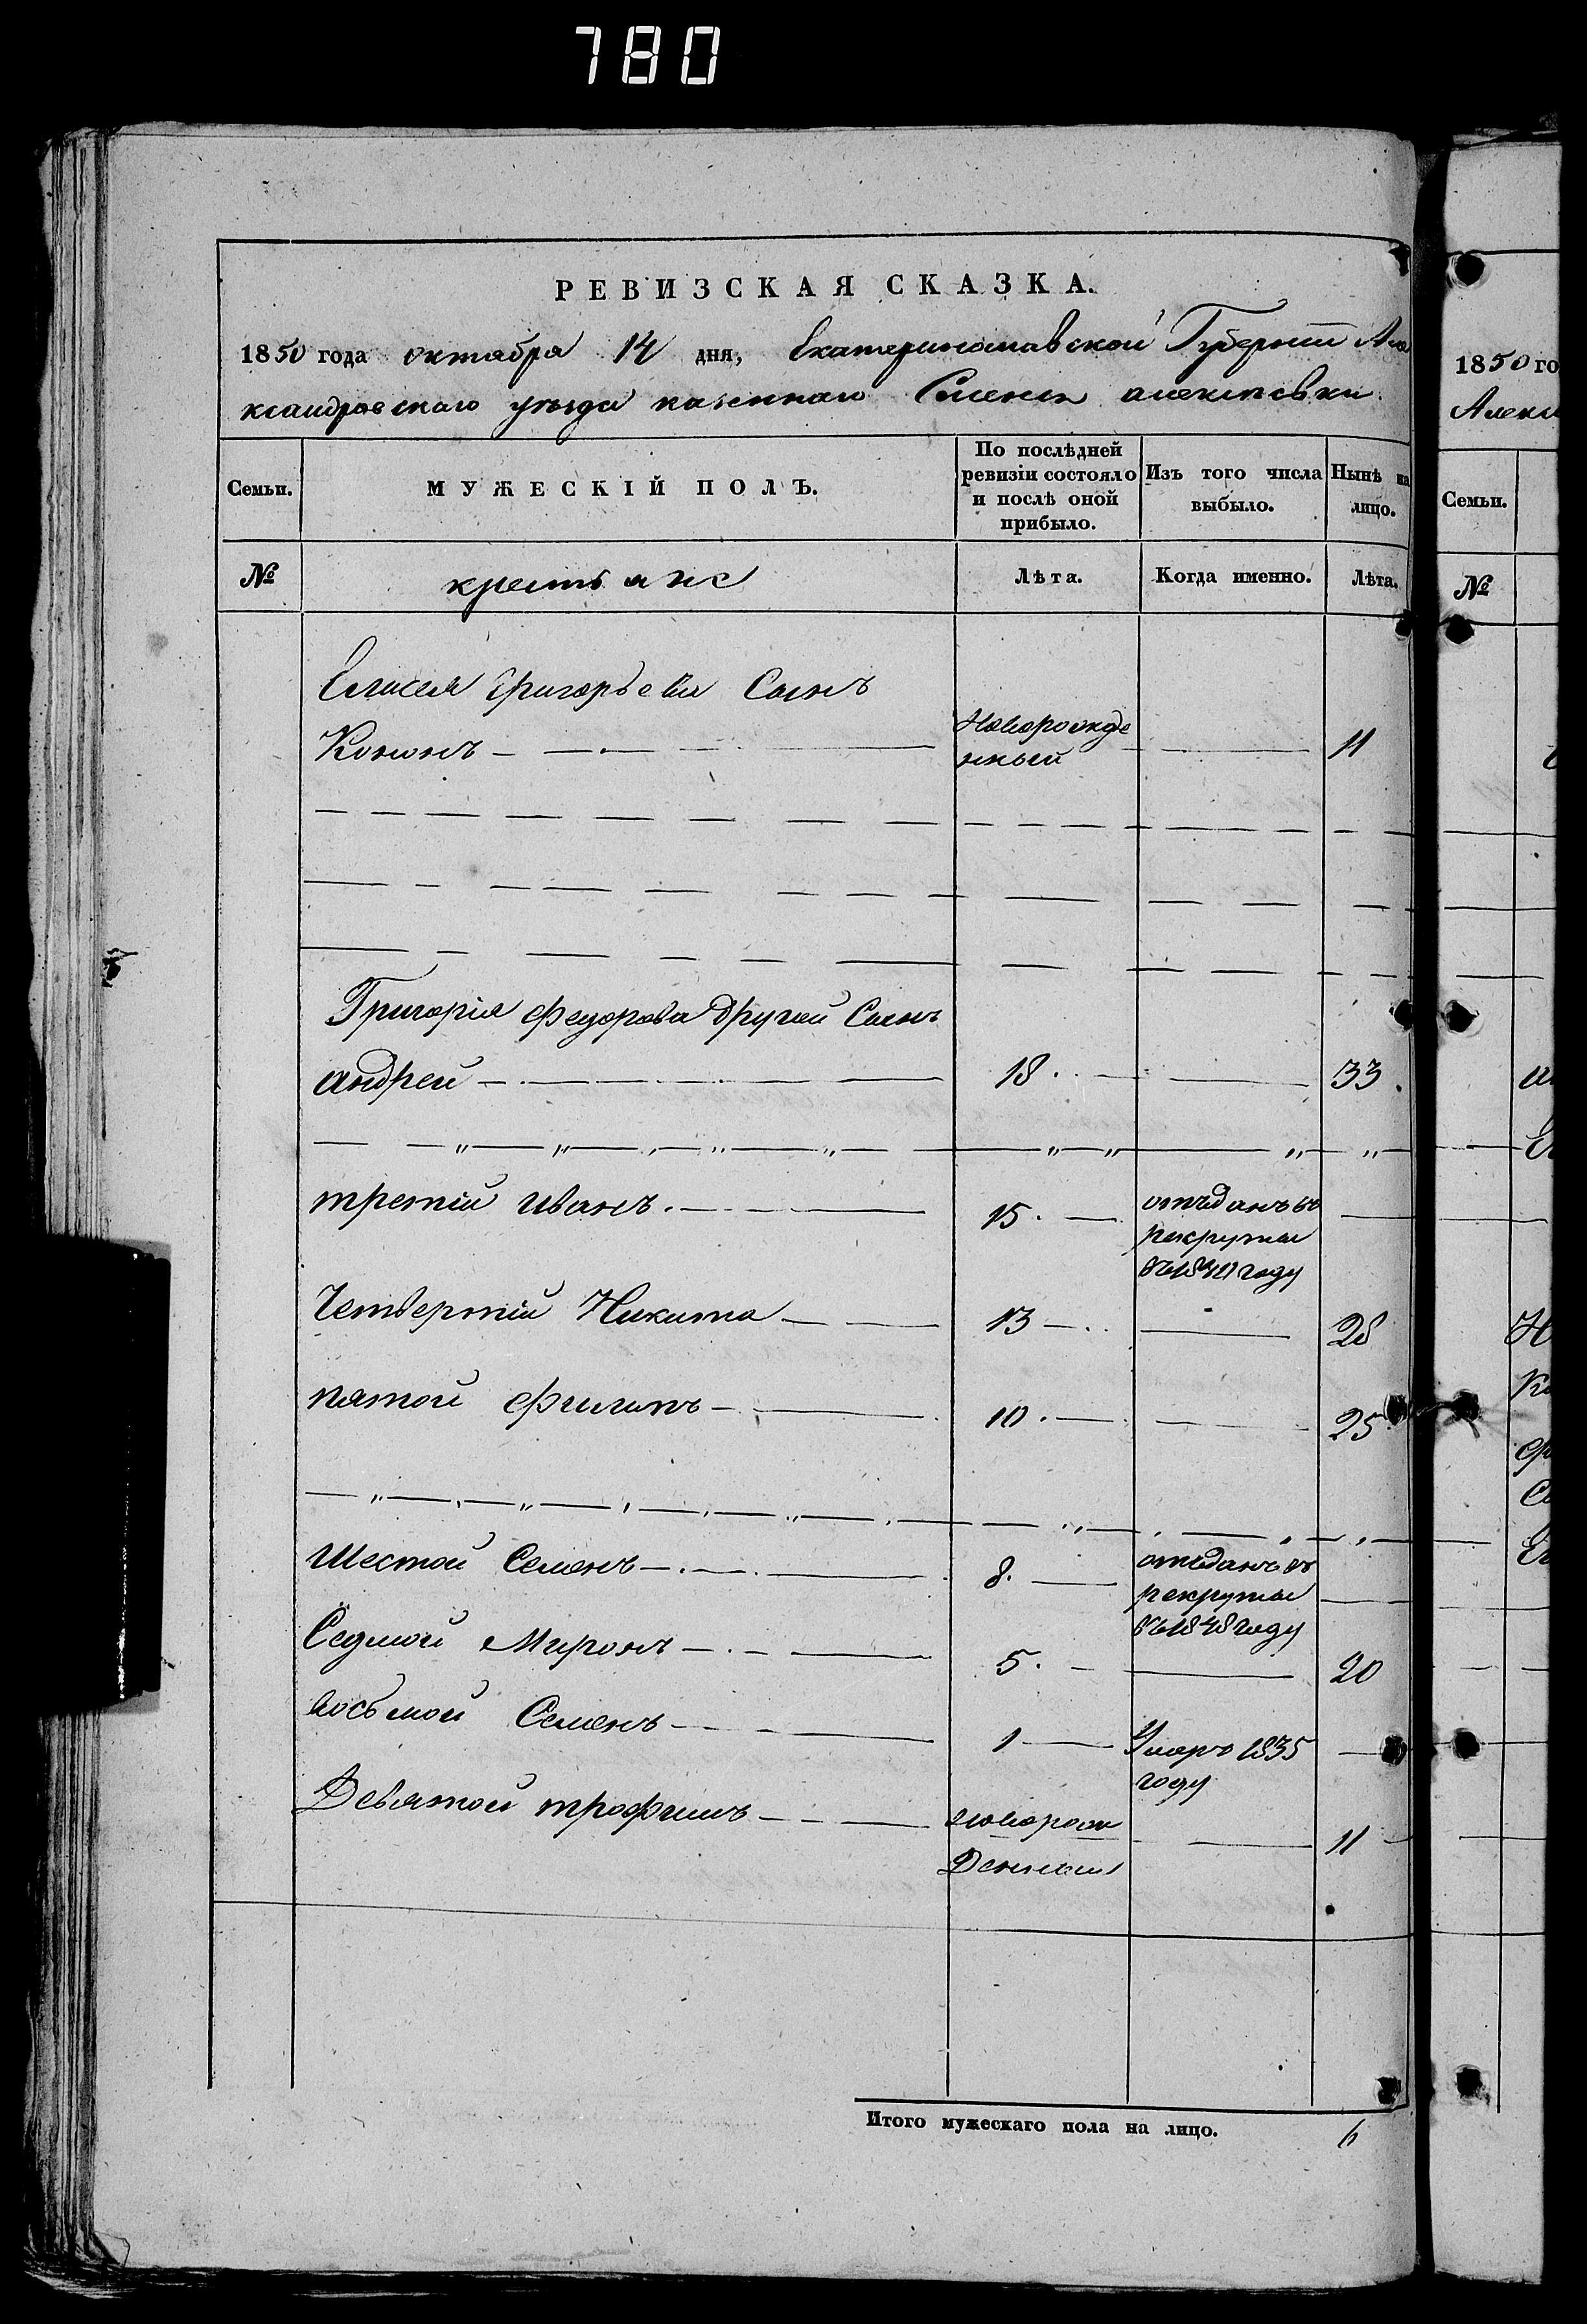 780
РЕВИЗСКАЯ СКАЗКА.
1850 года октября 14 дня, Екатеринославской Губернiи Але
ксандровскаго уѣзда казеннаго Селенiя алексѣевки
Семьи.
МУЖЕСКІЙ ПОЛЪ.
По послѣдней
ревизіи состояло
и послѣ оной
прибыло.
Изъ того числа
выбыло.
Нынѣ на
лицо.
№
крестьяне
Лѣта.
Когда именно.
Лѣта.
Елисея Григорьева Сынъ
Кононъ — Новорожде
нный — 11
Григорія Федорова другой Сынъ
андрей — 18. — 33.
третій иванъ. — 15. — отъданъ въ
рекруты
въ 1840 году
Четвертій Никита — 13 — 28
пятой Филипъ — 10. — 25
Шестой Семенъ — 8. — отъданъ въ
рекруты
въ 1848 году
Седмой Миронъ — 5. — 20
восьмой Семенъ — 1 — Умеръ 1835
году
Девятой трофимъ — новорож
денный — 11
Итого мужескаго пола на лицо. 6
1850 го
Алекс
Семьи.
№